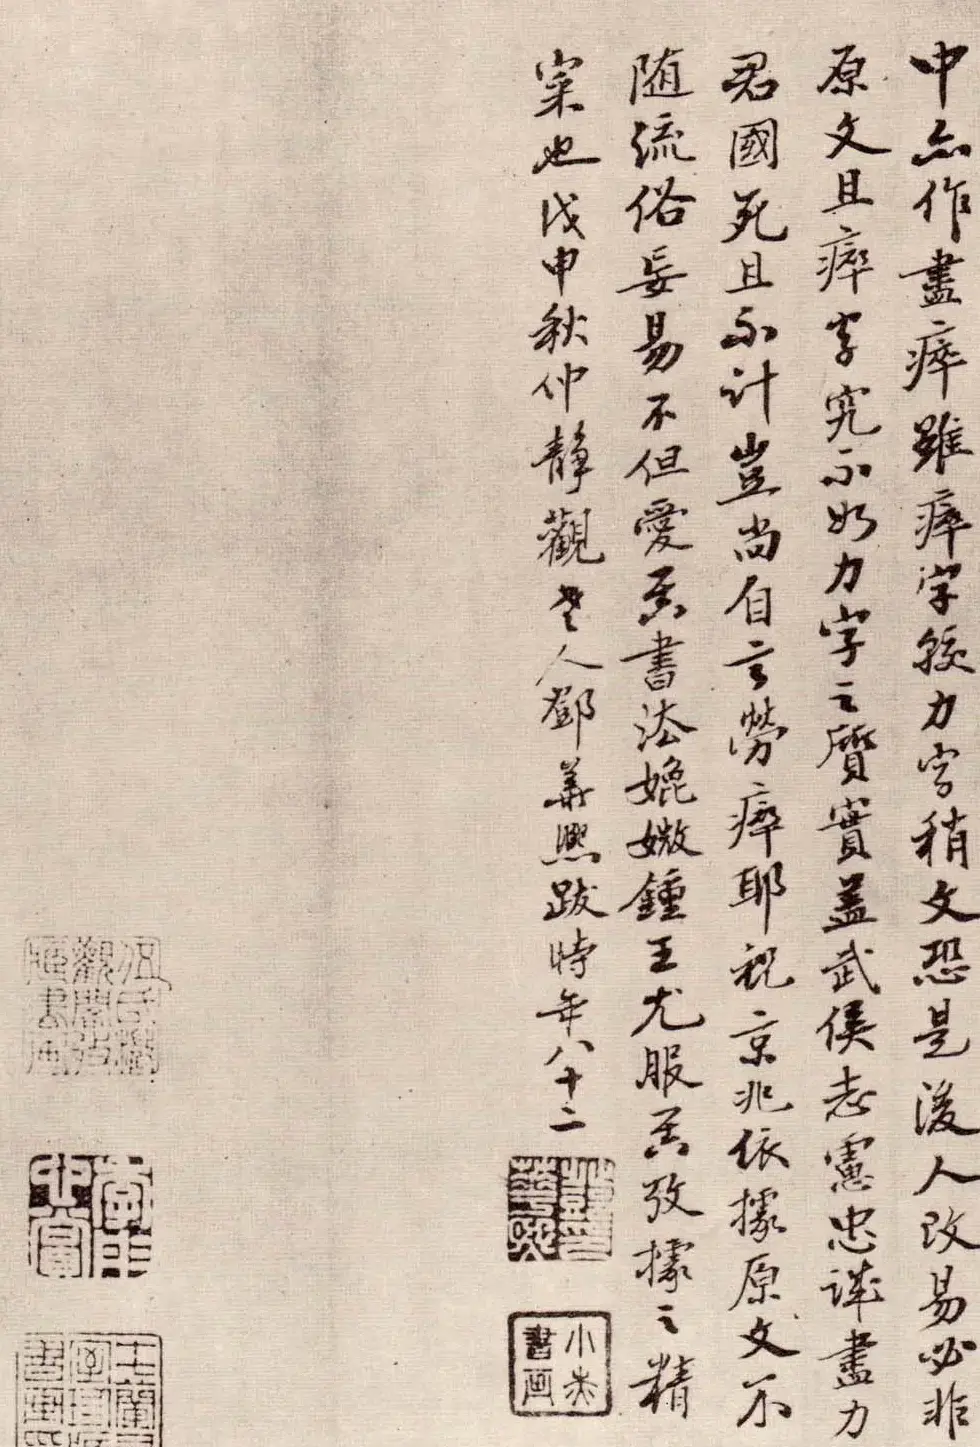 中亦作盡瘁雖瘁字較力字稍文恐是後人改易必非
原文且瘁字究不如力字之質實蓋武侯志慮忠誠盡力
君國死且不計豈尚自言勞瘁耶祝京兆依據原文不
隨流俗妄易不但愛其書法媲媺鍾王尤服其攷據之精
寀也戊申秋仲靜觀老人鄧華熙跋時年八十二
華熙
小赤書画